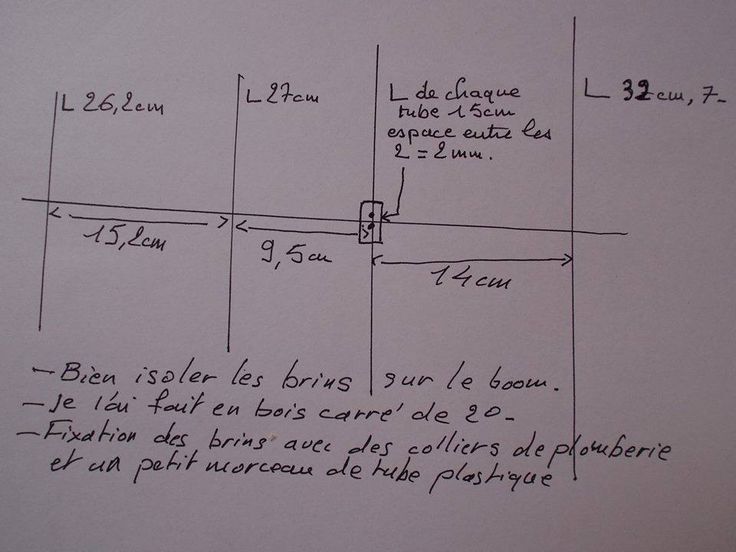 L 26,2cm
L 27cm
L de chaque
tube 15cm
espace entre les
2 = 2mm.
L 32cm, 7-
15,2cm
9,5cm
14cm
- Bien isoler les brins sur le boom.
- Je l'ai fait en bois carré de 20-
- Fixation des brins avec des colliers de plomberie
et un petit morceau de tube plastique